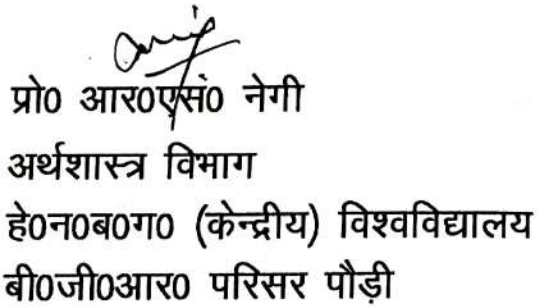 प्रो0 आर0एस0 नेगी
अर्थशास्त्र विभाग
हे0न0ब0ग0 (केन्द्रीय) विश्वविद्यालय
बी0जी0आर0 परिसर पौड़ी